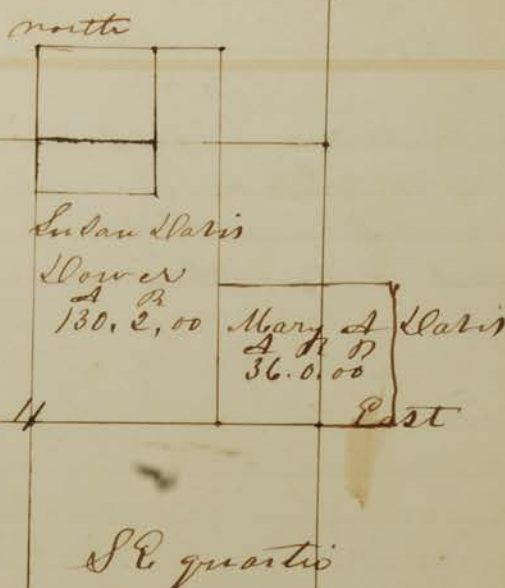 north
Susan Davis
Dower
A R
130. 2, 00
Mary A Davis
A R P
36. 0. 00
East
S E quarter